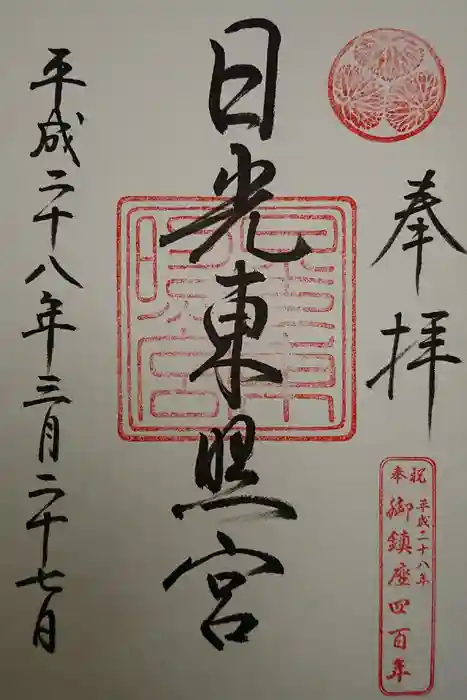 奉拝
奉祝
平成二十八年
御鎮座四百年
日光東照宮
平成二十八年三月二十七日